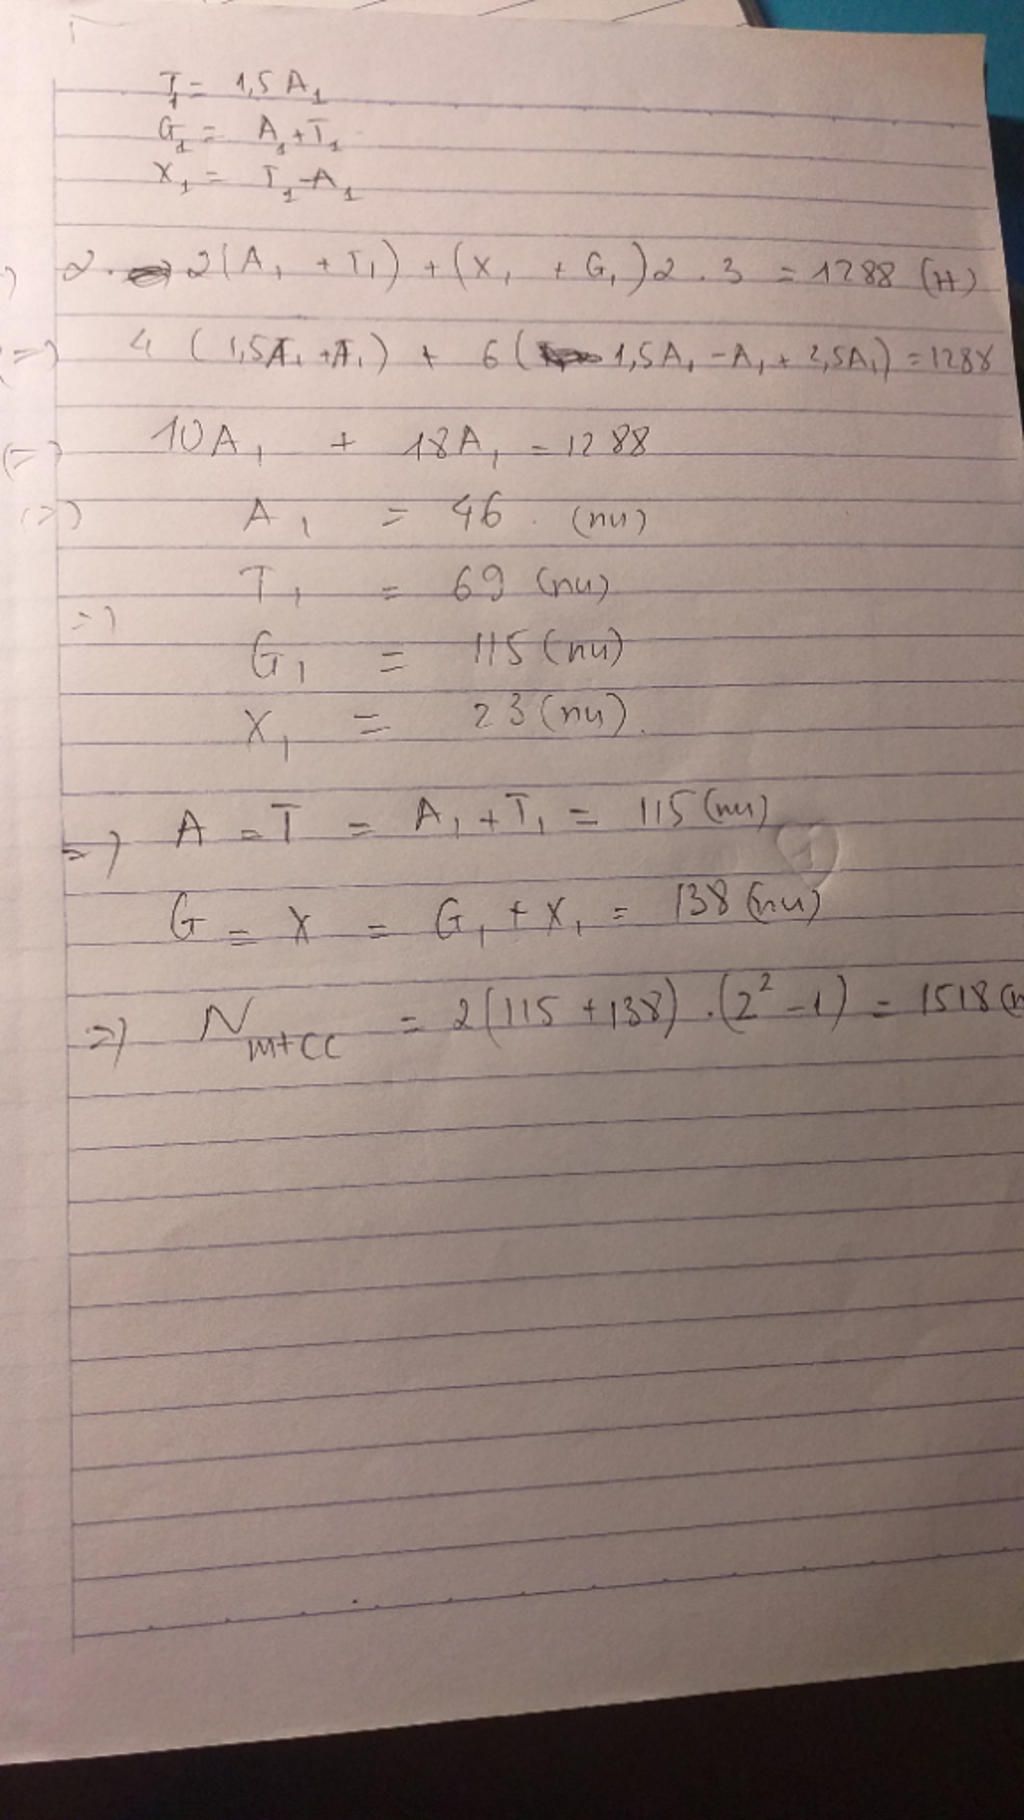 T₁ = 1,5 A₁
G₁ = A₁ + T₁
X₁ = T₁ - A₁
2 . 2(A₁ + T₁) + (X₁ + G₁)2 . 3 = 1288 (H)
(=) 4 (1,5A₁ + A₁) + 6 (1,5A₁ - A₁ + 2,5A₁) = 1288
(=) 10A₁ + 18A₁ = 1288
(=) A₁ = 46 . (nu)
T₁ = 69 (nu)
=)
G₁ = 115 (nu)
X₁ = 23 (nu).
=) A = T = A₁ + T₁ = 115 (nu)
G = X = G₁ + X₁ = 138 (nu)
=) N mtcc = 2(115 + 138) . (2² - 1) = 1518 (n